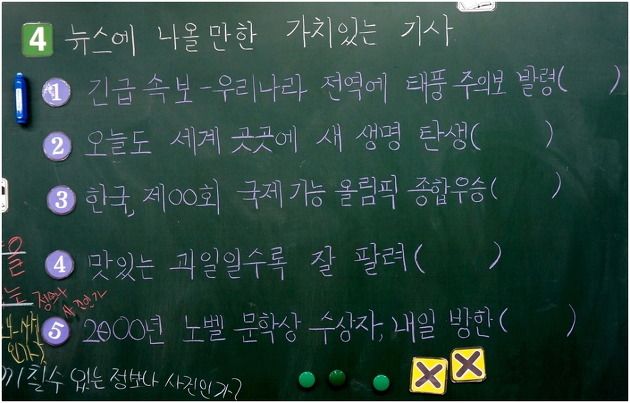 4 뉴스에 나올 만한 가치있는 기사
1 긴급 속보 - 우리나라 전역에 태풍 주의보 발령( )
2 오늘도 세계 곳곳에 새 생명 탄생( )
3 한국, 제00회 국제 기능 올림픽 종합우승( )
4 맛있는 과일일수록 잘 팔려( )
5 2000년 노벨 문학상 수상자, 내일 방한( )
칠 수 있는 정보나 사진인가?